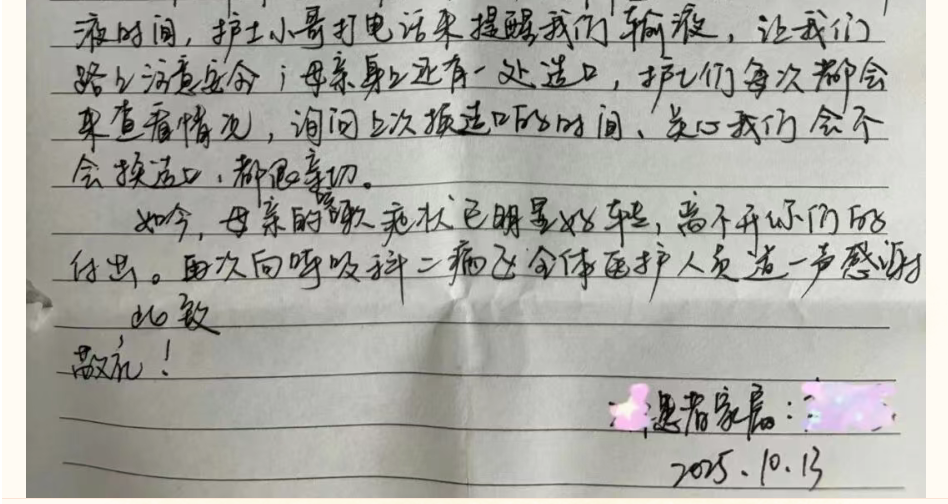 液时间，护士小哥打电话来提醒我们输液，让我们
路上注意安全；母亲身上还有一处造口，护士们每次都会
来查看情况，询问上次换造口的时间、关心我们会不
会换造口，都很亲切。
如今，母亲的咳嗽症状已明显好转，离不开你们的
付出。再次向呼吸科二病区全体医护人员道一声感谢
此致
敬礼！
患者家属：
2025.10.13